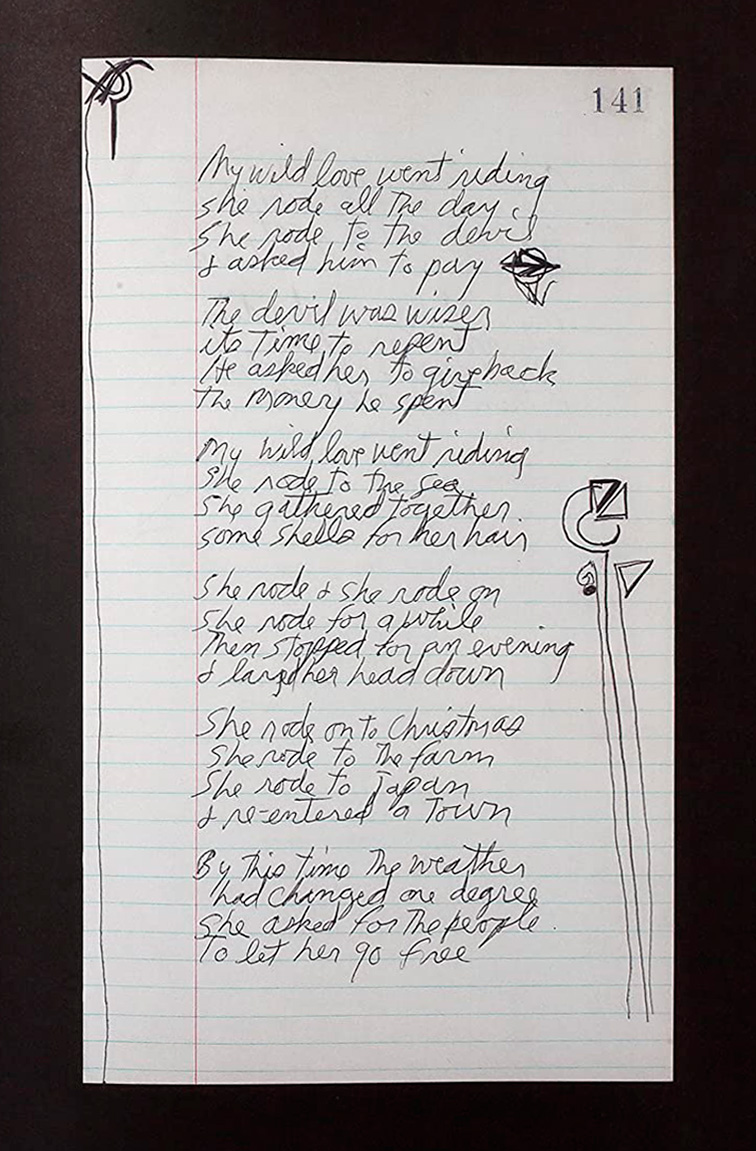 141
My wild love went riding
she rode all the day
She rode to the devil
& asked him to pay
The devil was wiser
its time to repent
He asked her to give back
the money he spent
My wild love went riding
She rode to the sea
She gathered together
some shells for her hair
She rode & she rode on
She rode for a while
Then stopped for an evening
& layed her head down
She rode on to Christmas
She rode to the farm
She rode to Japan
& re-entered a Town
By this time The weather
had changed one degree
She asked for The people
To let her go free